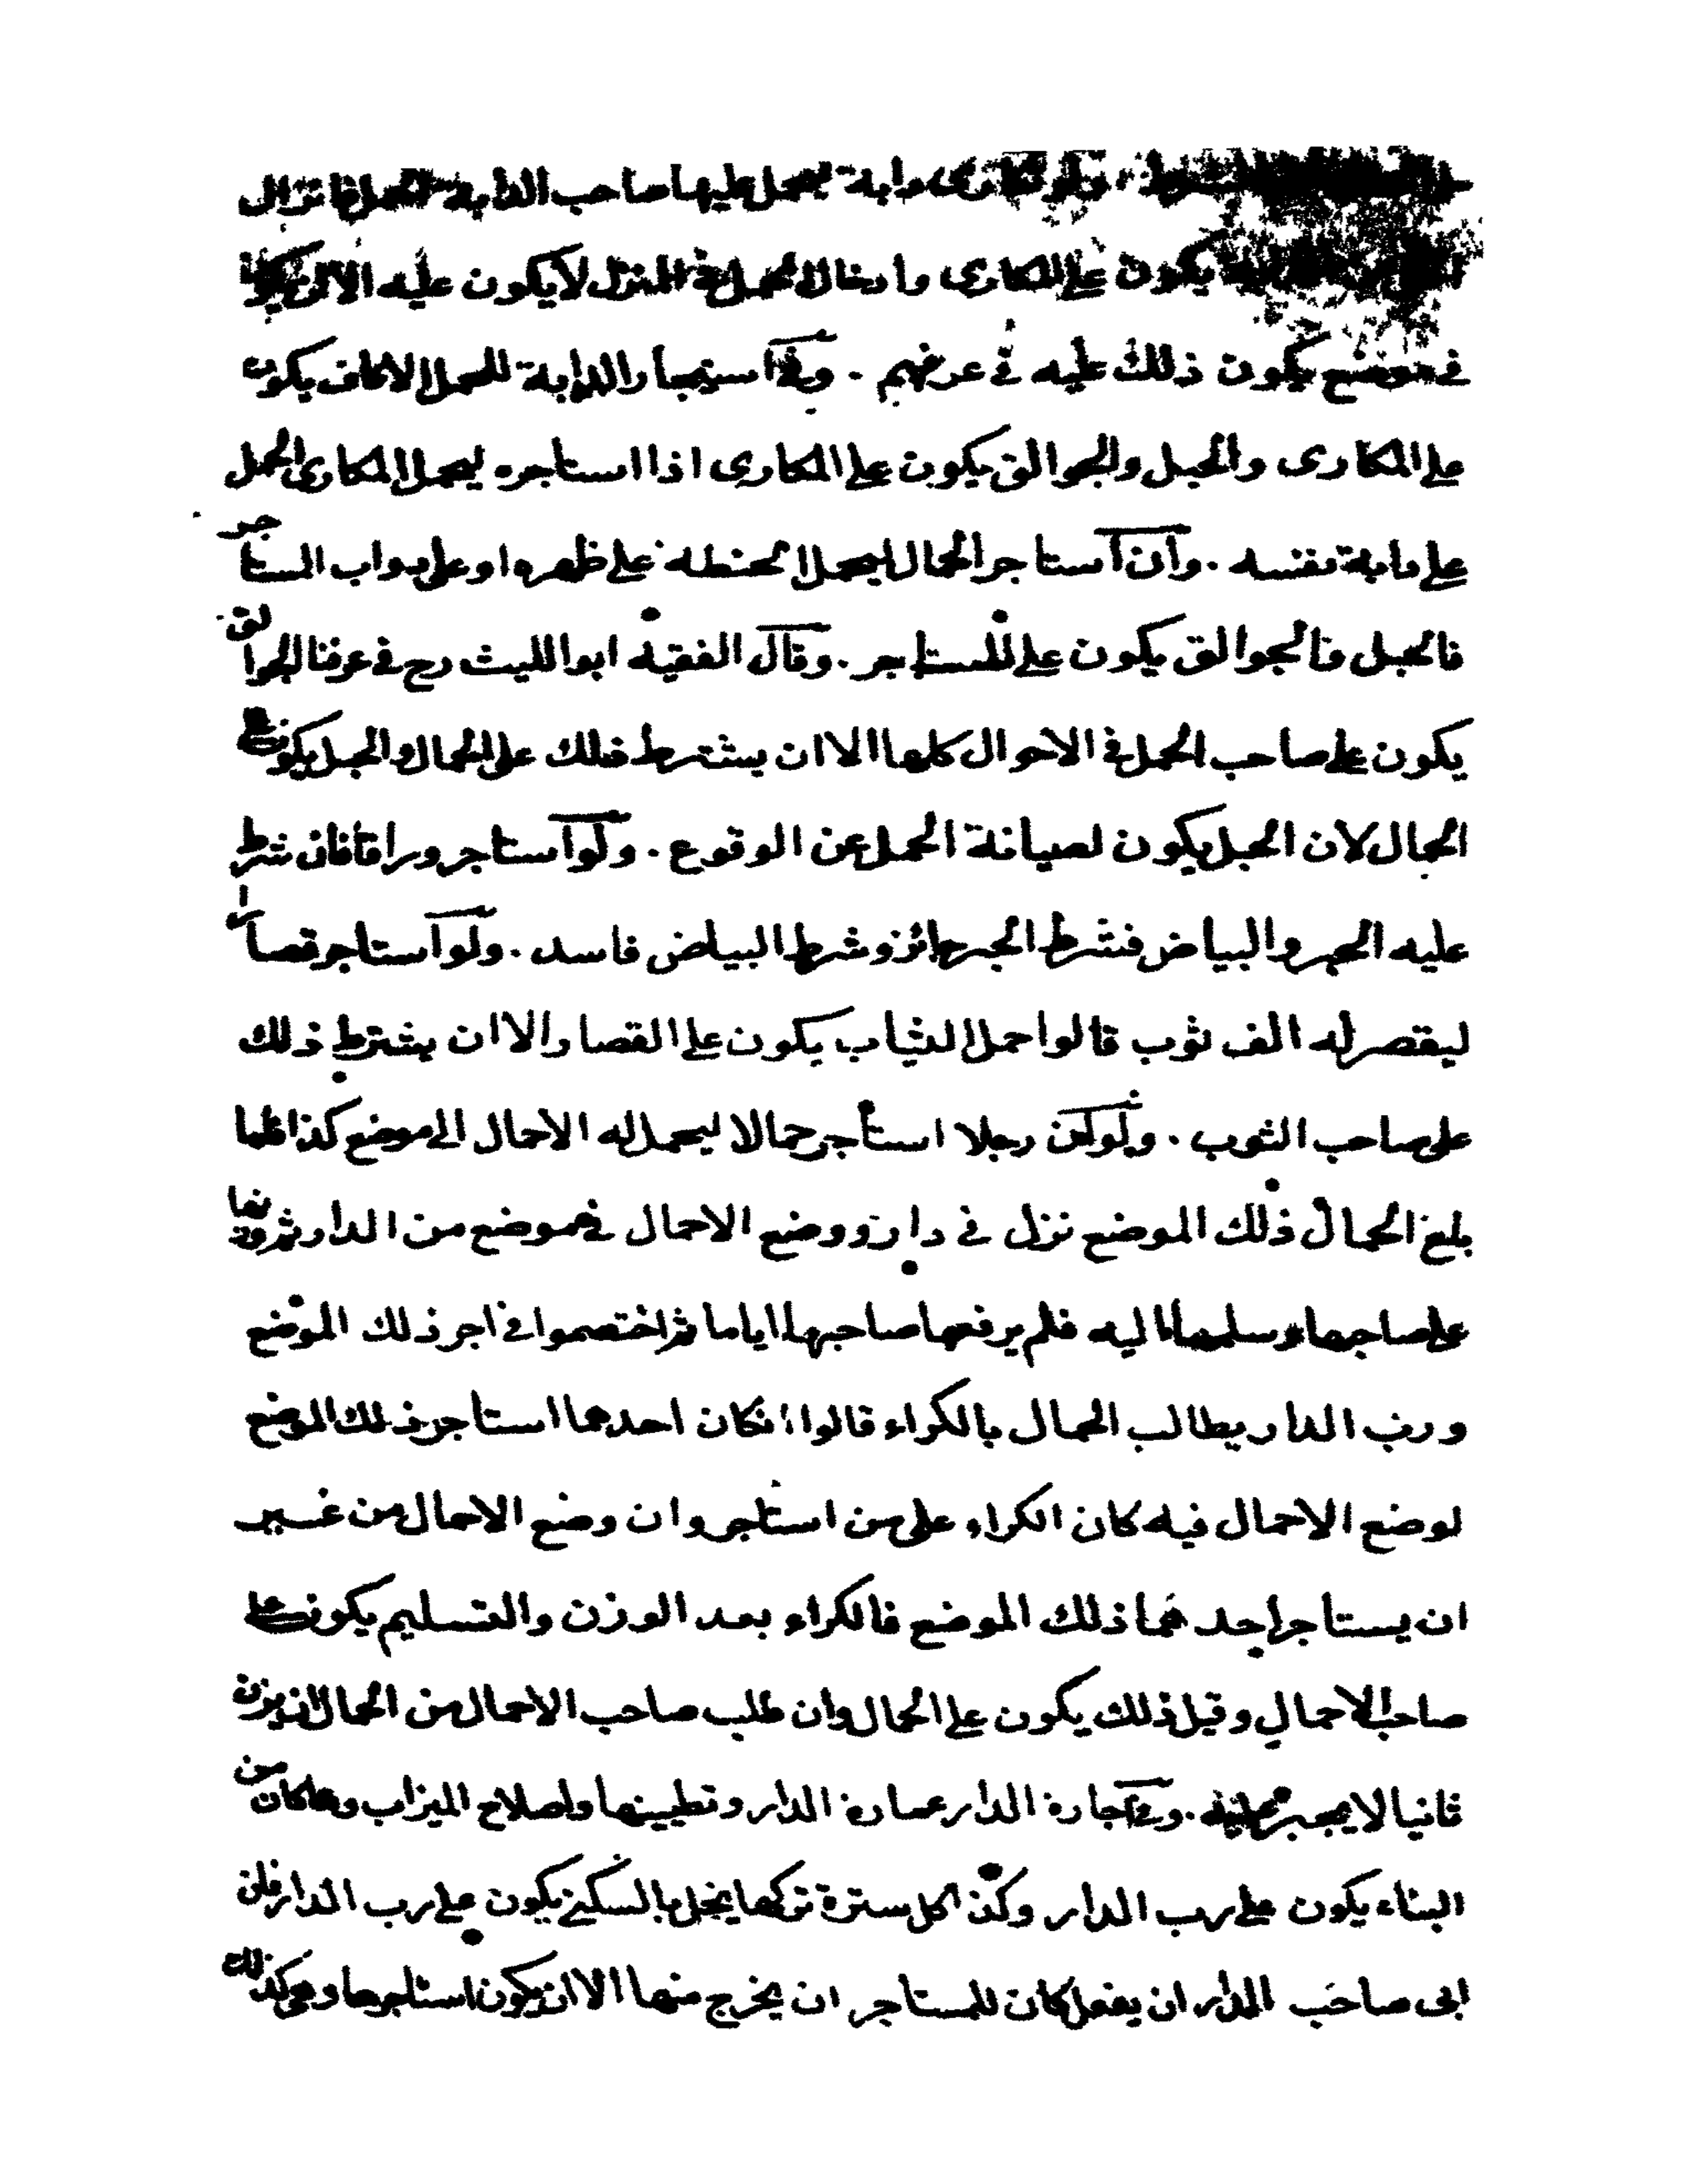 الشرط . ولو تكارى دابة ليحمل عليها صاحب الدابة الحمل فانزال
يكون على المكارى وادخال الحمل في المنزل لا يكون عليه الا ان يكون
في موضع يكون ذلك عليه في عرفهم . وفي استيجار الدابة للحمل الاكاف يكون
على المكارى والحبل والجوالق يكون على المكارى اذا استاجره ليحمل المكارى الحمل
على دابة نفسه . وان استاجر الحمال ليحمل الحنطة على ظهره او على دواب المستاجر
فالحبل فالجوالق يكون على المستاجر . وقال الفقيه ابو الليث رح في عرفنا الجوالق
يكون على صاحب الحمل في الاحوال كلها الا ان يشترط ذلك على الحمال والحبل يكون على
الحمال لان الحبل يكون لصيانة الحمل عن الوقوع . ولو استاجر وراقا فان شرط
عليه الحبر والبياض فشرط الحبر جائز وشرط البياض فاسد . ولو استاجر قصارا
ليقصر له الف ثوب قالوا حمل الثياب يكون على القصار الا ان يشترط ذلك
على صاحب الثوب . ولو ان رجلا استاجر حمالا ليحمل له الاحمال الى موضع كذا فلما
بلغ الحمال ذلك الموضع نزل في دار ووضع الاحمال في موضع من الدار ثم وزنها
على صاحبها وسلمها اليه فلم يرفعها صاحبها اياما ثم اختصموا في اجر ذلك الموضع
ورب الدار يطالب الحمال بالكراء قالوا ان كان احدهما استاجر ذلك الموضع
لوضع الاحمال فيه كان الكراء على من استاجر وان وضع الاحمال من غير
ان يستاجر احد هما ذلك الموضع فالكراء بعد الوزن والتسليم يكون على
صاحب الاحمال وقبل ذلك يكون على الحمال وان طلب صاحب الاحمال من الحمال ان يزن
ثانيا لا يجبر عليه . وفي اجارة الدار عمارة الدار وتطيينها واصلاح الميزاب وما كان من
البناء يكون على رب الدار وكذا كل سترة تركها يخل بالسكنى يكون على رب الدار فان
ابى صاحب الدار ان يفعل كان للمستاجر ان يخرج منها الا ان يكون استاجرها وهي كذلك